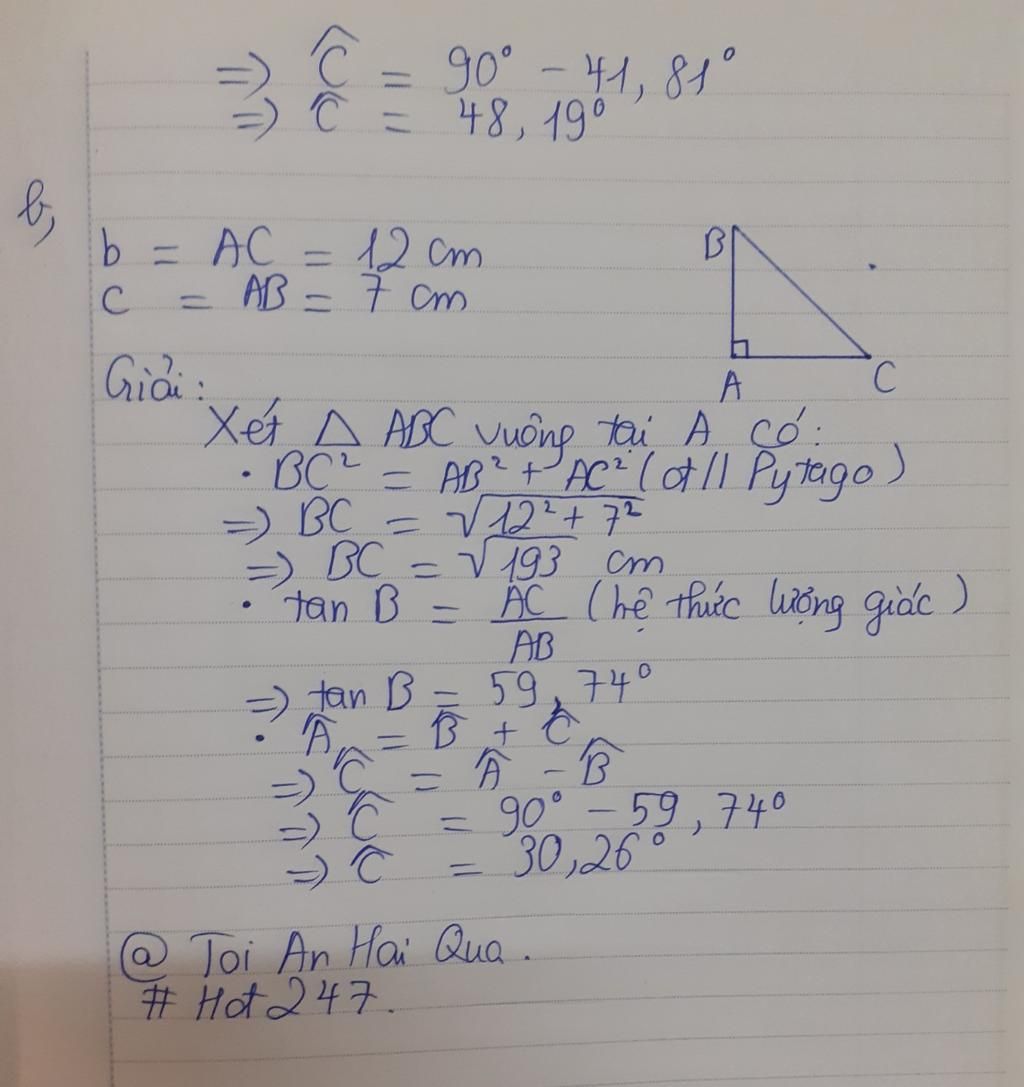 => Ĉ = 90° - 41,81°
=> Ĉ = 48,19°
b,
b = AC = 12 cm
c = AB = 7 cm
B
A
C
Giải:
Xét △ ABC vuông tại A có:
• BC² = AB² + AC² (đ// Pytago)
=> BC = √(12² + 7²)
=> BC = √193 cm
• tan B = AC/AB (hệ thức lượng giác)
=> tan B = 59,74°
• Â = B̂ + Ĉ
=> Ĉ = Â - B̂
=> Ĉ = 90° - 59,74°
=> Ĉ = 30,26°
@ Toi An Hai Qua.
# Hot247.